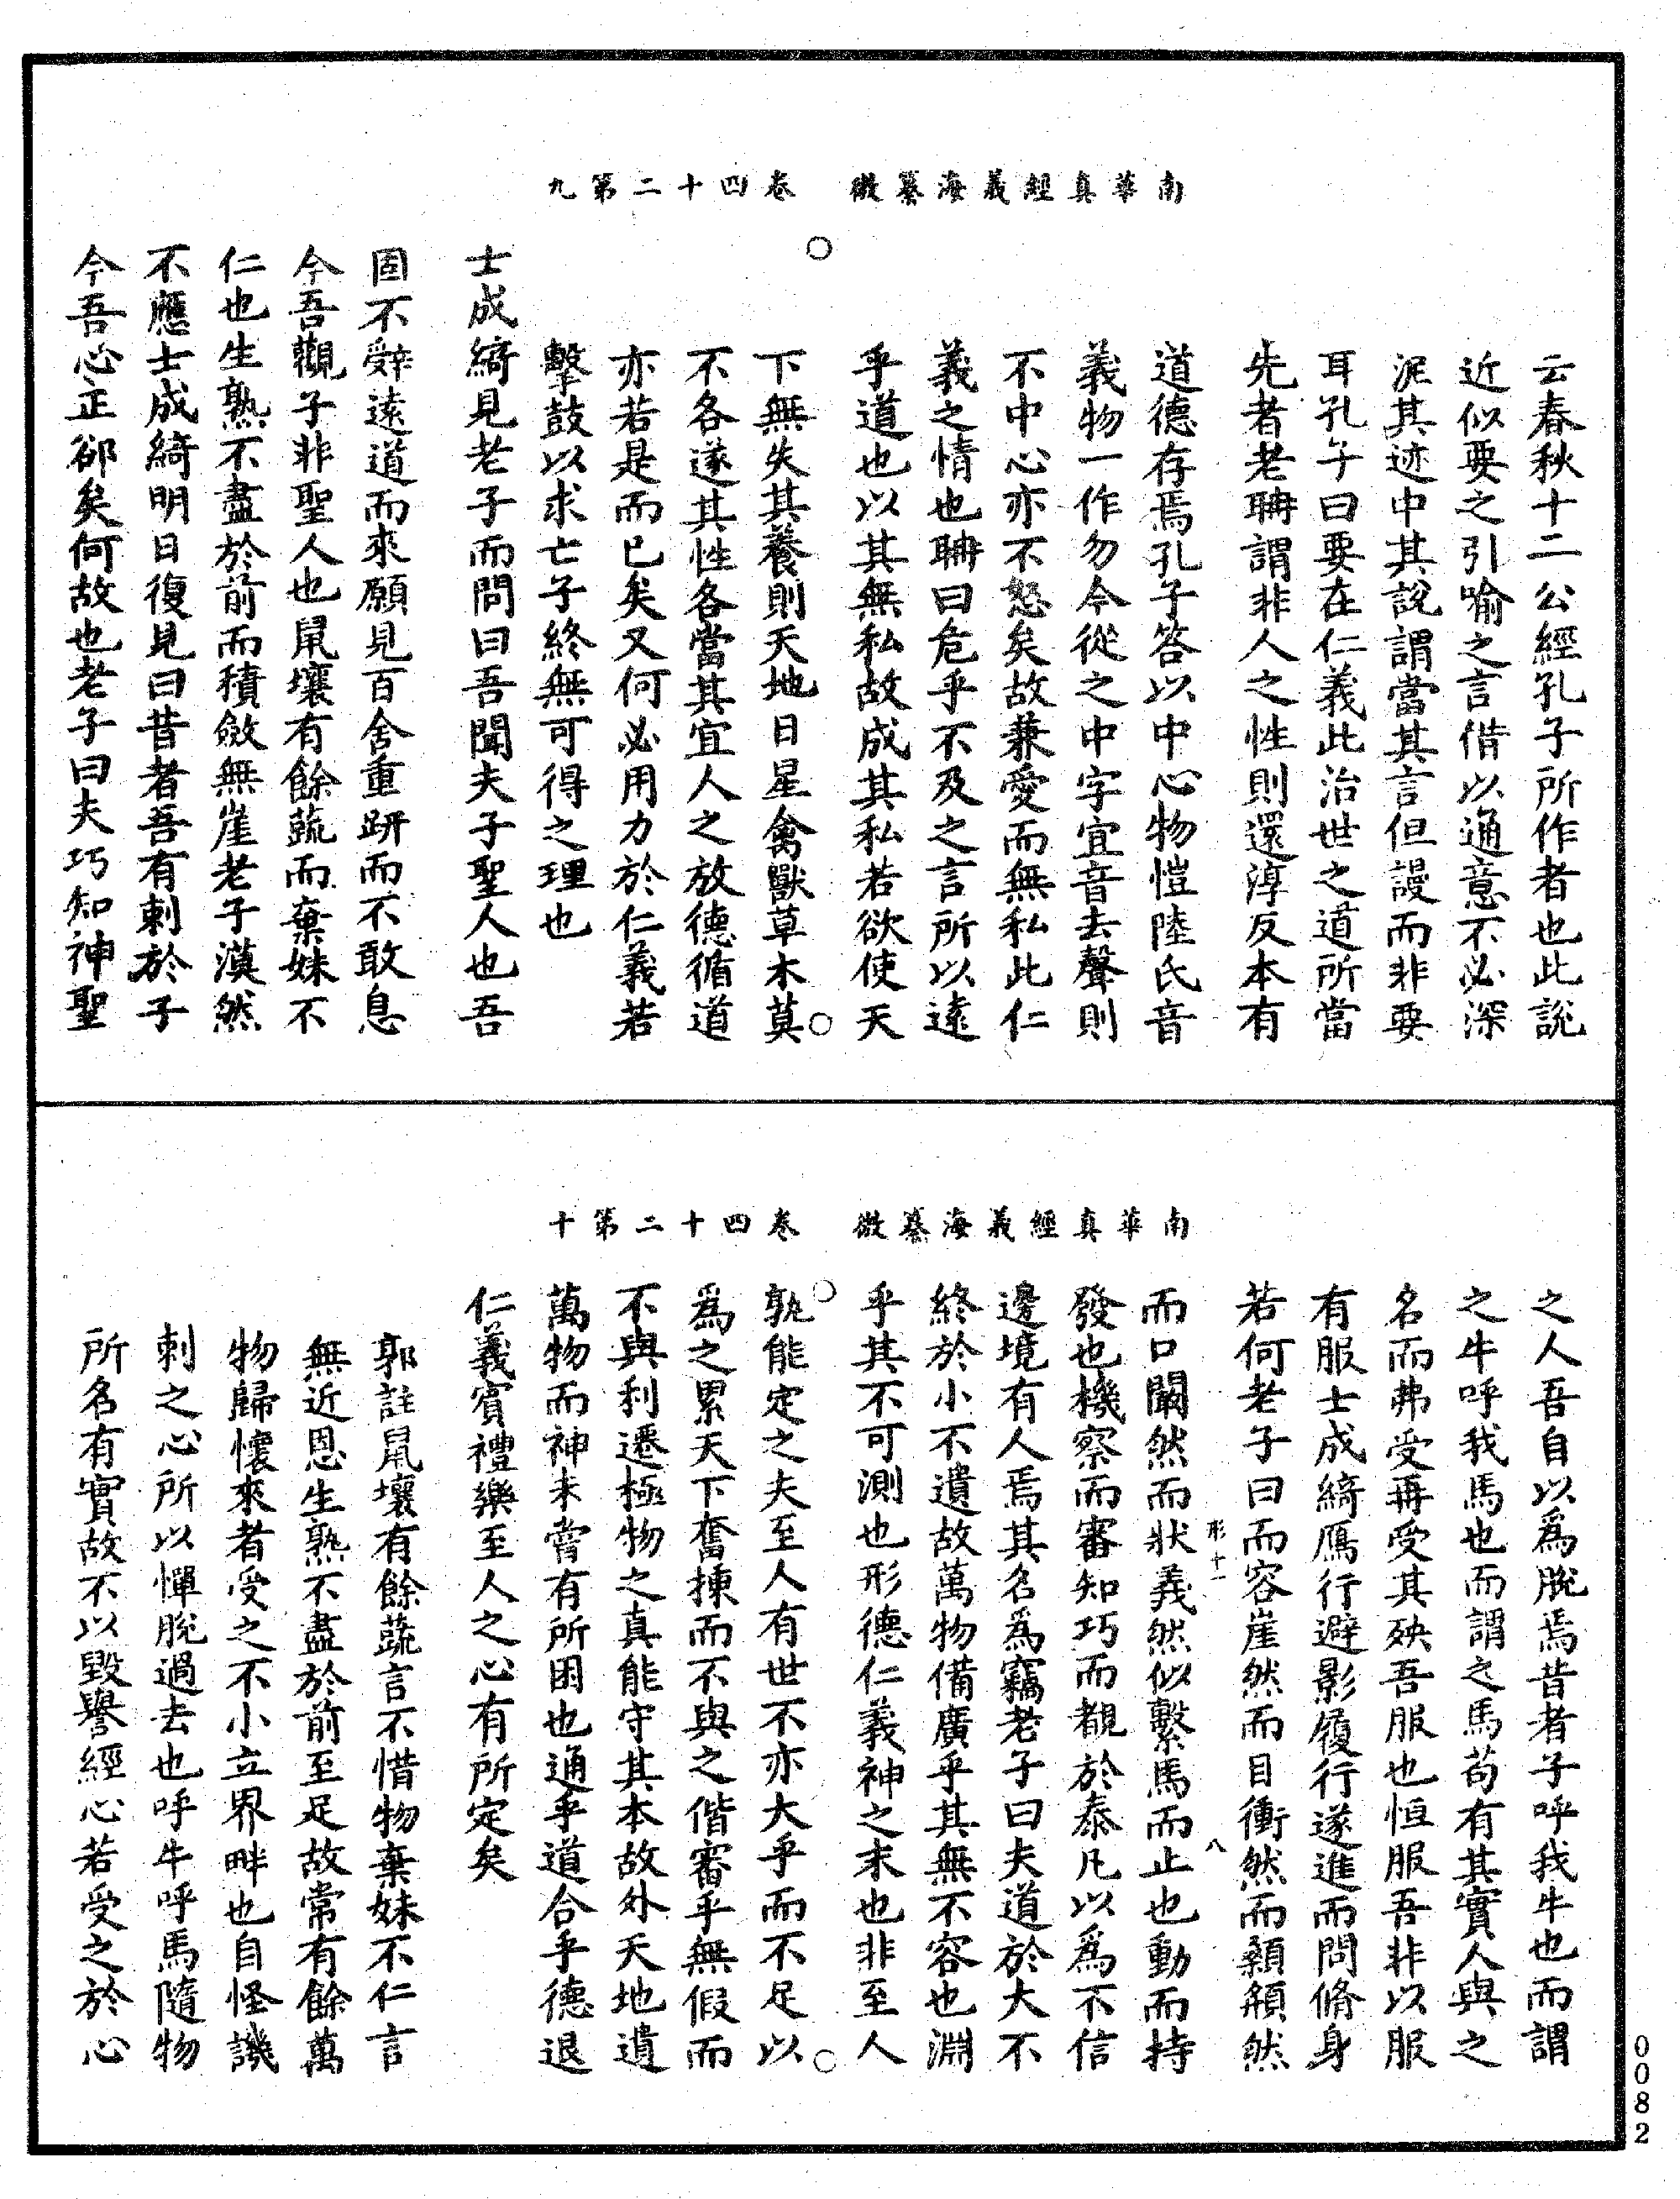 南華真經義海纂微　卷四十二第九
云春秋十二公經孔子所作者也此說
近似要之引喻之言借以通意不必深
泥其迹中其說謂當其言但謾而非要
耳孔子曰要在仁義此治世之道所當
先者老聃謂非人之性則還淳反本有
道德存焉孔子答以中心物愷陸氏音
義物一作勿今從之中字宜音去聲則
不中心亦不怒矣故兼愛而無私此仁
義之情也聃曰危乎不及之言所以遠
乎道也以其無私故成其私若欲使天
下無失其養則天地日星禽獸草木莫
不各遂其性各當其宜人之放德循道
亦若是而已矣又何必用力於仁義若
擊鼓以求亡子終無可得之理也
士成綺見老子而問曰吾聞夫子聖人也吾
固不辭遠道而來願見百舍重趼而不敢息
今吾觀子非聖人也鼠壤有餘蔬而棄妹不
仁也生熟不盡於前而積斂無崖老子漠然
不應士成綺明日復見曰昔者吾有剌於子
今吾心正郤矣何故也老子曰夫巧知神聖
南華真經義海纂微　卷四十二第十
之人吾自以為脫焉昔者子呼我牛也而謂
之牛呼我馬也而謂之馬苟有其實人與之
名而弗受再受其殃吾服也恒服吾非以服
有服士成綺鴈行避影履行遂進而問脩身
若何老子曰而容崖然而目衝然而顙頯然
形十一　八
而口闞然而狀義然似繫馬而止也動而持
發也機察而審知巧而覩於泰凡以為不信
邊境有人焉其名為竊老子曰夫道於大不
終於小不遺故萬物備廣乎其無不容也淵
乎其不可測也形德仁義神之末也非至人
孰能定之夫至人有世不亦大乎而不足以
為之累天下奮揀而不與之偕審乎無假而
不與利遷極物之真能守其本故外天地遺
萬物而神未嘗有所困也通乎道合乎德退
仁義賓禮樂至人之心有所定矣
郭註鼠壤有餘蔬言不惜物棄妹不仁言
無近恩生熟不盡於前至足故常有餘萬
物歸懷來者受之不小立界畔也自怪譏
剌之心所以憚脫過去也呼牛呼馬隨物
所名有實故不以毀譽經心若受之於心
0082